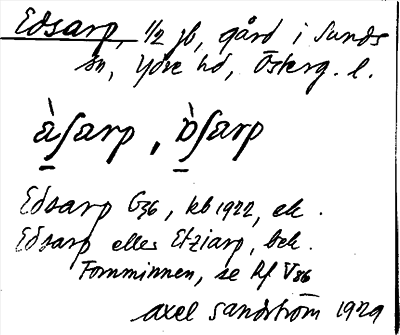 Edsarp, 1/2 jb, gård i Sunds
sn, Ydre hd, Österg. l.
à̱ʃarp, ò̱ʃarp
Edsarp G36, kb 1922, ek.
Edsarp eller Etziarp, bek.
Fornminnen, se Rf V86
Axel Sandström 1929